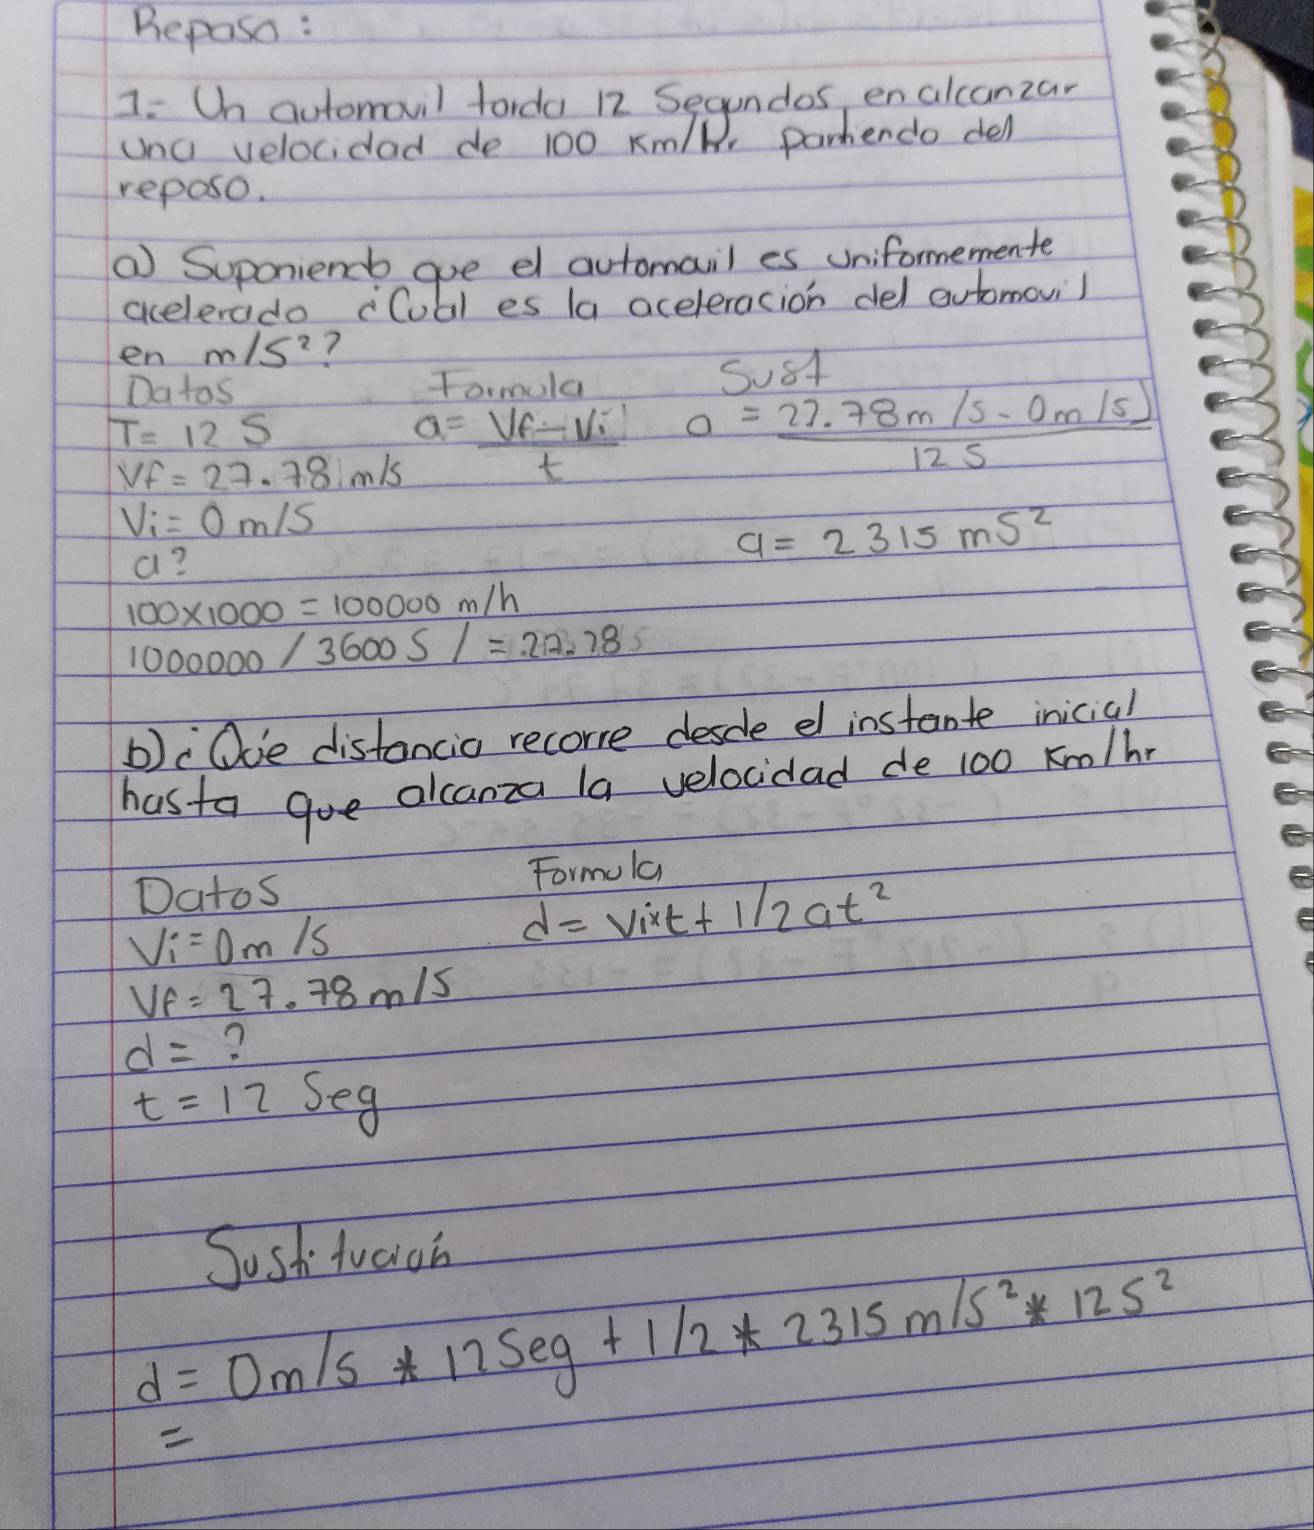 Repaso:
1.- Un automovil tarda 12 Segundos, en alcanzar
una velocidad de 100 Km/Hr partiendo del
reposo.
a) Suponiendo que el automovil es uniformemente
acelerado ¿Cual es la aceleración del automovil
en m/s²?
Datos Formula Sust
T= 12 S a= Vf-Vi a = 27.78m/s-0m/s)
Vf= 27.78 m/s t 12 S
Vi= 0m/S
a= 2315 mS²
a?
100x1000 = 100000 m/h
1000000 / 3600 S / = 27.78 s
b) ¿Que distancia recorre desde el instante inicial
hasta que alcanza la velocidad de 100 Km/hr
Datos Formula
Vi=0m/s d= Vixt+1/2at²
Vf= 27.78m/s
d= ?
t= 12 Seg
Sustitución
d= 0m/s * 12Seg + 1/2 * 2315 m/s² * 12S²
=